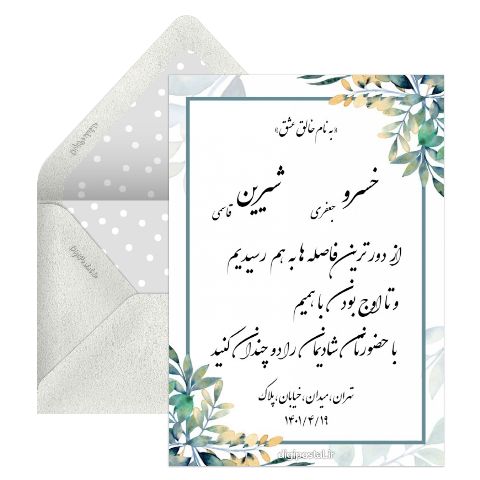 «به نام خالق عشق»
خسرو جعفری شیرین قاسمی
از دور ترین فاصله ها به هم رسیدیم
و تا اوج بودن با همیم
با حضورتان شادیمان را دو چندان کنید
تهران، میدان، خیابان، پلاک
۱۴۰۱/۴/۱۹
digipostal.ir
DigiPostal.ir
DigiPostal.ir